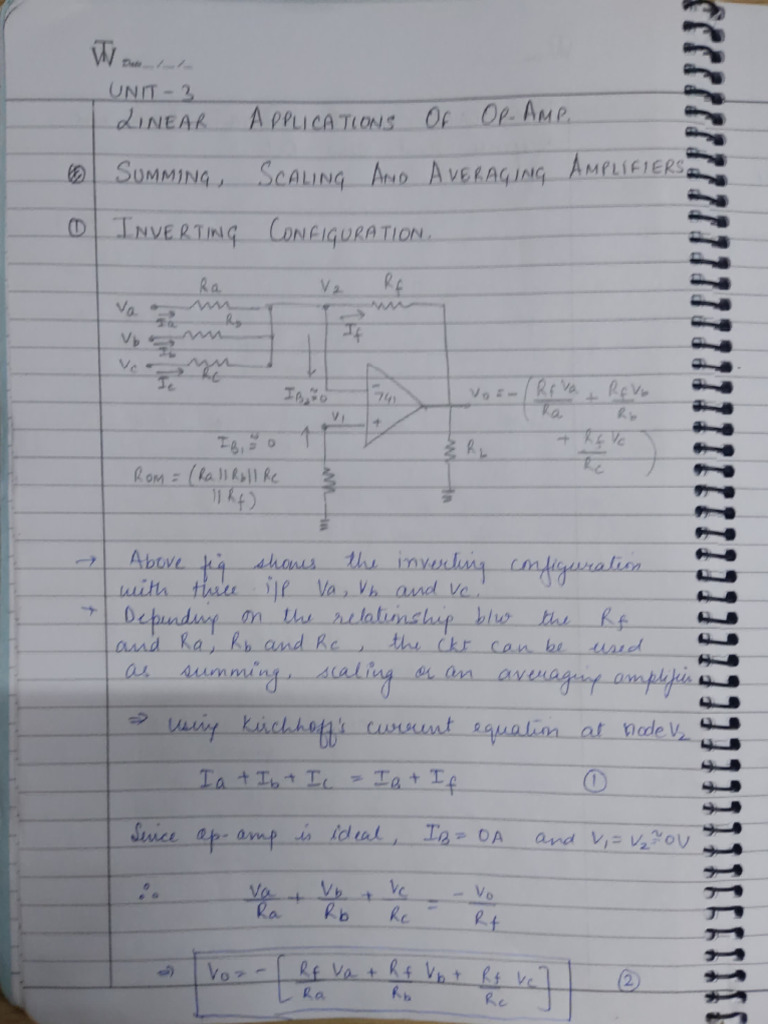 TW Date _/_/_
UNIT - 3
LINEAR APPLICATIONS OF OP-AMP.
SUMMING, SCALING AND AVERAGING AMPLIFIERS
① INVERTING CONFIGURATION.
Ra V2 Rf
Va Ia Rb If
Vb Ib
Vc Ic Rc
IB2 ≅ 0 - 741 + Vo = - ( Rf Va / Ra + Rf Vb / Rb
V1
IB1 ≅ 0 RL + Rf Vc / Rc )
ROM = (Ra || Rb || Rc
|| Rf)
→ Above fig shows the inverting configuration
with three i/p Va, Vb and Vc.
→ Depending on the relationship b/w the Rf
and Ra, Rb and Rc, the ckt can be used
as summing, scaling or an averaging amplifier
⇒ Using Kirchhoff's current equation at node V2
Ia + Ib + Ic = IB + If ①
Since op-amp is ideal, IB = 0A and V1 = V2 ≅ 0V
∴ Va/Ra + Vb/Rb + Vc/Rc = - Vo/Rf
⇒ Vo = - [ Rf/Ra Va + Rf/Rb Vb + Rf/Rc Vc ] ②